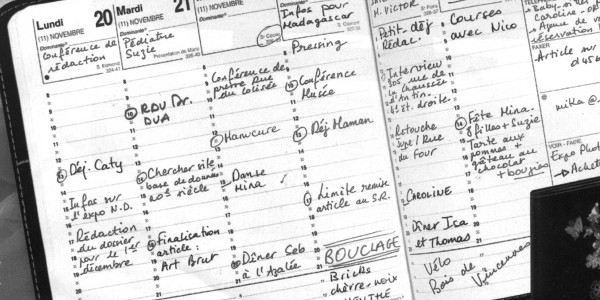 Lundi 20
(11) NOVEMBRE
Dominante
Conférence de
rédaction
S. Edmond
324-41
Déj. Caty
Infos sur
l'expo N.D.
Rédaction
du dossier
pour le 1er
décembre
Mardi 21
(11) NOVEMBRE
Dominante
Pédiatre
Suzie
Présentation de Marie
325-40
RDV Dr.
DUA
Chercher site
base de données
siècle
Finalisation
article :
Art Brut
(11) NOVEMBRE
Dominante
Ste Cécile
Conférence de
presse Rue
du Colisée
Manucure
Danse
Mina
Dîner Seb
à l'Azalée
Infos pour
Madagascar
S. Clément
Pressing
Conférence
Musée
Déj Maman
Limite remise
article au S.R.
BOUCLAGE
Bricks
chèvre-noix
MENTHE
H. Victor
Petit-déj
Rédac.
Interview
305, rue de
la chaussée
d'Antin.
6° ét. droite.
Retouche
Jupe / Rue
du Four
CAROLINE
Dîner Isa
et Thomas
Vélo
Bois de Vincennes
Courses
avec Nico
Fête Mina.
8 filles + Suzie
Tarte aux
pommes +
gâteau au
chocolat
+ bougies
TÉLÉPHONER
Baby-si
Caroline
Agence de
réservation
FAXER
Article sur
mika@
VOIR - FAIRE
Expo Phot
→ Achete